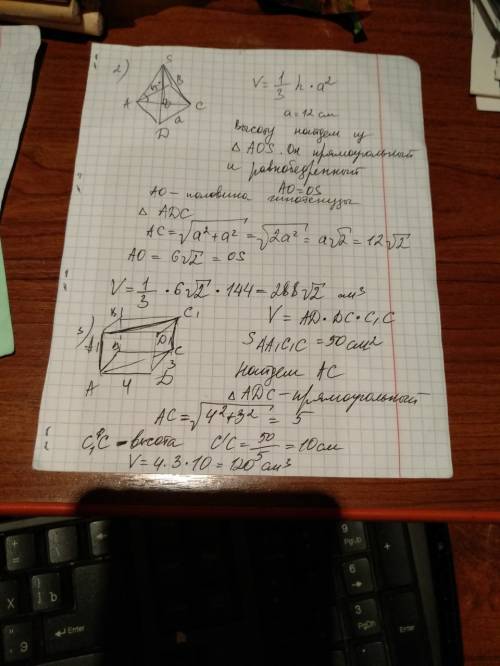 2)
S
B
A
C
D
a
V = 1/3 h · a²
a = 12 см
Высоту найдем из
△ AOS. Он прямоугольный
и равнобедренный
AO = OS
AO - половина гипотенузы
△ ADC
AC = √(a² + a²) = √(2a²) = a√2 = 12√2
AO = 6√2 = OS
V = 1/3 · 6√2 · 144 = 288√2 см³
3)
B₁
C₁
A₁
D₁
B
C
A
4
D
3
V = AD · DC · C₁C
S AA₁C₁C = 50 см²
Найдем AC
△ ADC - прямоугольный
AC = √(4² + 3²) = 5
C₁C - высота C₁C = 50/5 = 10 см
V = 4 · 3 · 10 = 120 см³
+ =
- _
X
Ъ
Э
9 PgUp
6
3 PgDn
Enter